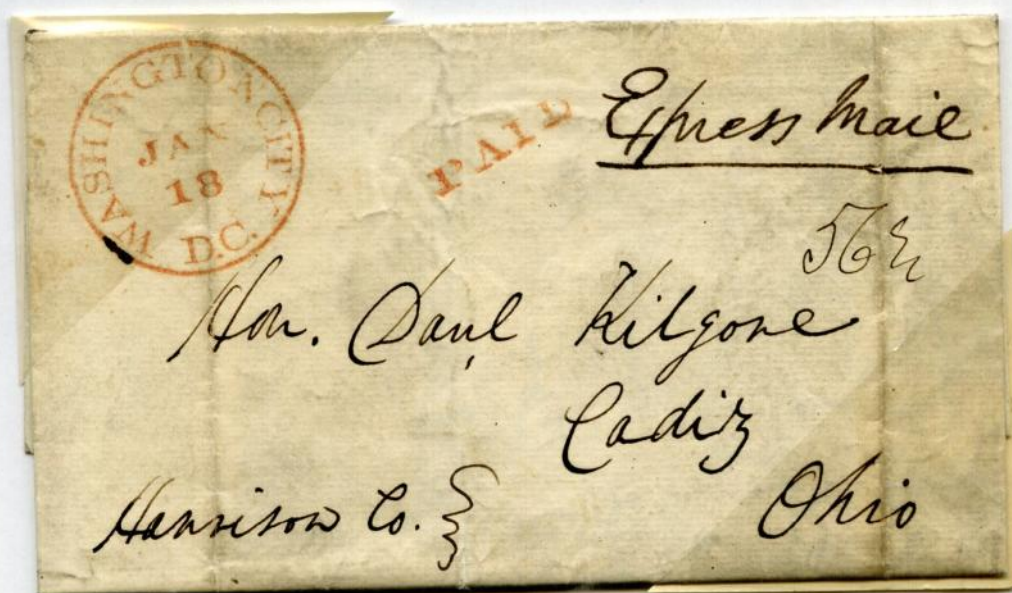 WASHINGTON CITY
JAN
18
D.C.
PAID
Express Mail
56
Hon. Danl Kilgore
Cadiz
Harrison Co. Ohio